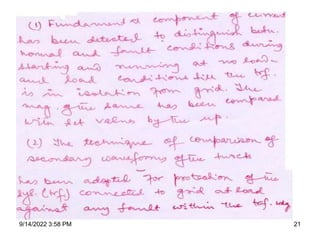 (1) Fundamental component of current
has been detected to distinguish betn.
normal and fault conditions during
starting and running at no load
and load conditions till the trf.
is in isolation from grid. The
mag. of the same has been compared
with set values by the up.
(2) The technique of comparison of
secondary waveforms of the
has been adopted for protection of the
(trf.) connected to grid at load
against any fault within the trf. wdg
9/14/2022 3:58 PM
21